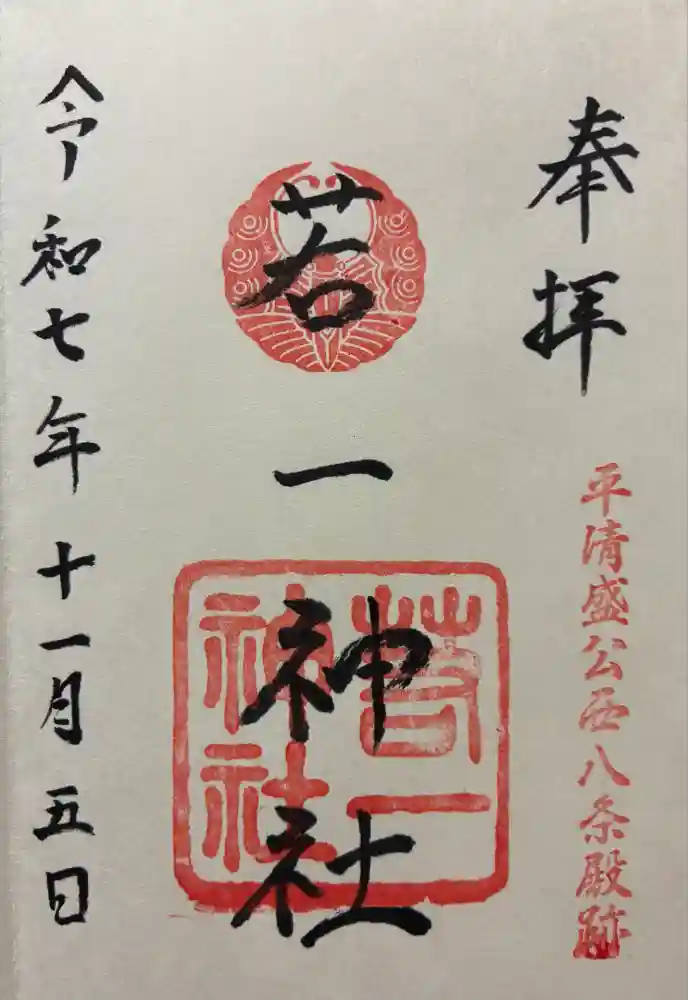 奉拝
平清盛公西八条殿跡
若一神社
若一神社
令和七年十一月五日